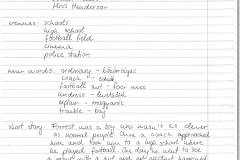 Miss Henderson
venues: schools
high school
football field
cinema
police station
new words: ordinary - közönséges
coach - edző
football suit - foci mez
undress - levetkőzik
explain - magyaráz
trouble - baj
Short story: Forrest was a boy who wasn't as clever
as normal people. Once a coach approached
him and took him to a high school where
he played football. One day he went to see
a movie with a girl and got